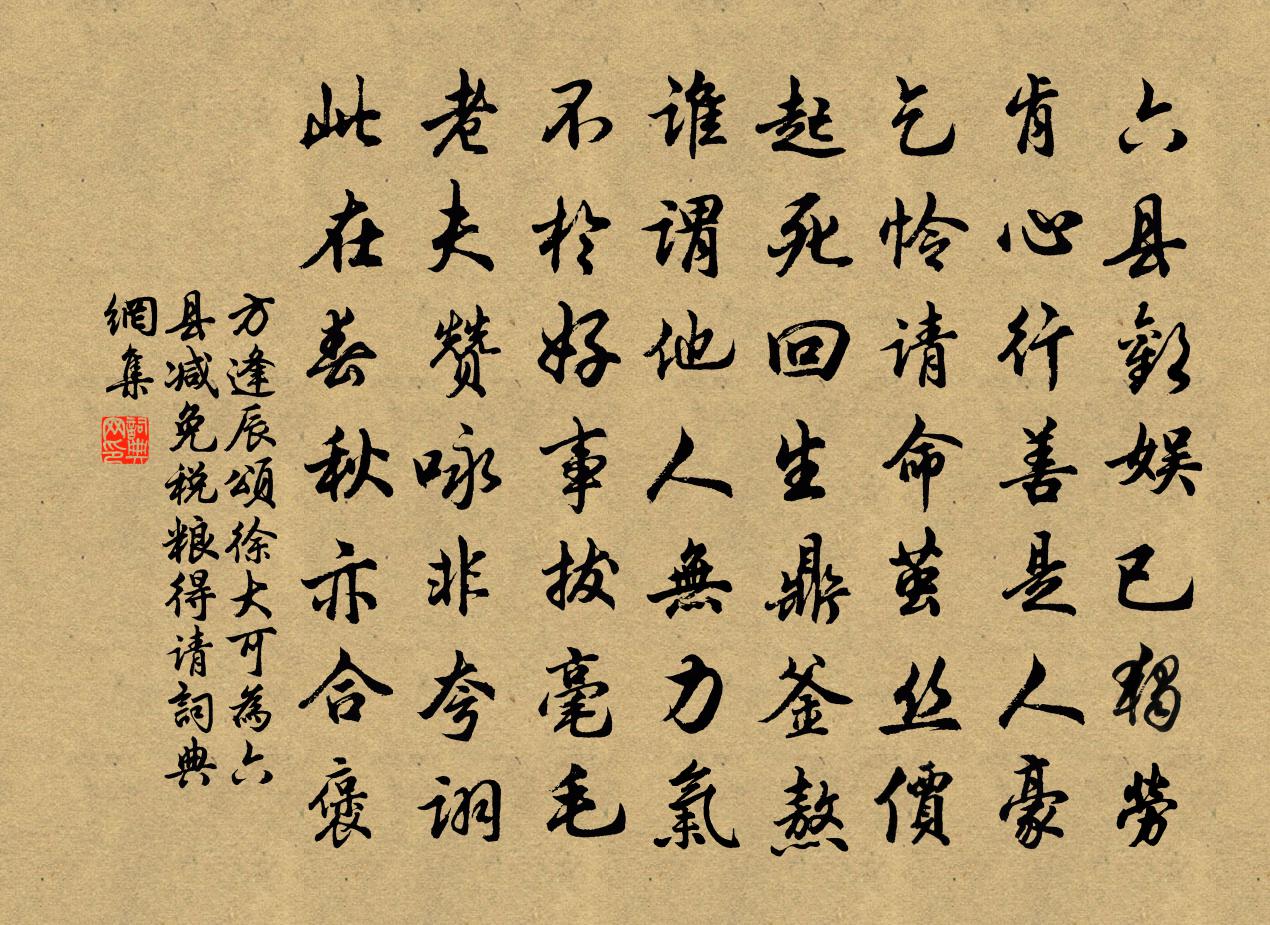 六县欢娱已独劳
肯心行善是人豪
乞怜请命茧丝價
起死回生鼎釜熬
谁谓他人無力氣
不於好事拔毫毛
老夫赞咏非夸诩
此在春秋亦合褒
方逢辰頌徐大可為六
县减免税粮得请詞典
網集
詞典网印